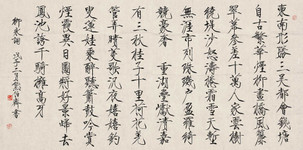 東南形勝三吳都會錢塘
自古繁華煙柳畫橋風簾
翠幕參差十萬人家雲樹
繞堤沙怒濤捲霜雪天塹
無涯市列珠璣戶盈羅綺
競豪奢重湖疊巘清嘉
有三秋桂子十里荷花羌
管弄晴菱歌泛夜嬉嬉釣
叟蓮娃乘醉聽簫鼓吟賞
煙霞異日圖將好景歸去
鳳池誇千騎擁高牙
柳永詞 書